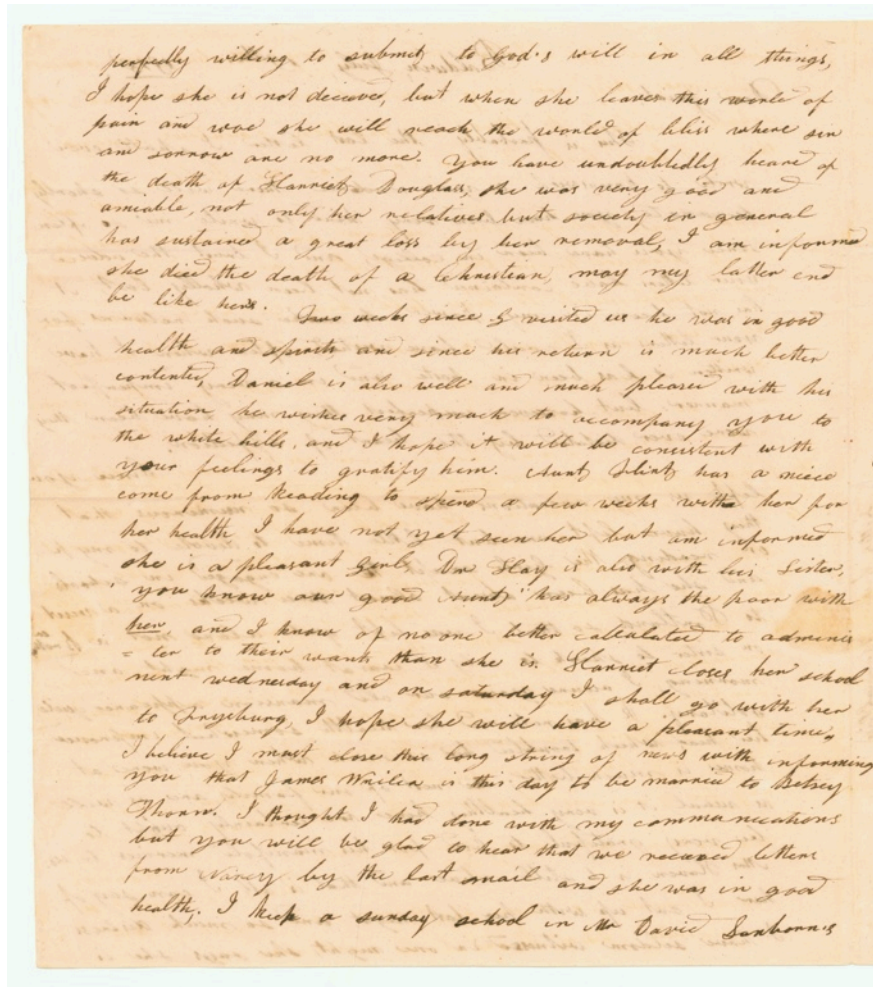 perfectly willing to submit to God's will in all things,
I hope she is not deceive, but when she leaves this world of
pain and woe she will reach the world of bliss where sin
and sorrow are no more. You have undoubtedly heard of
the death of Harriet Douglass, she was very good and
amiable, not only her relatives but society in general
has sustained a great loss by her removal, I am informed
she died the death of a Christian, may my latter end
be like hers. Two weeks since visited us he was in good
health and spirits and since his return is much better
contented, Daniel is also well and much pleased with his
situation he wishes very much to accompany you to
the white hills, and I hope it will be consistent with
your feelings to gratify him. Aunt Flint has a niece
come from Reading to spend a few weeks with her for
her health I have not yet seen her but am informed
she is a pleasant girl, Dr Hay is also with his Sister,
you know our good Aunt has always the poor with
her, and I know of no one better calculated to adminis
= ter to their wants than she is. Harriet closes her school
next wednesday and on saturday I shall go with her
to Fryeburg, I hope she will have a pleasant time,
I believe I must close this long string of news with informing
you that James is this day to be married to Betsey
Thorn. I thought I had done with my communications
but you will be glad to hear that we received letters
from Nancy by the last mail and she was in good
health, I keep a sunday school in Mr David Sanborns